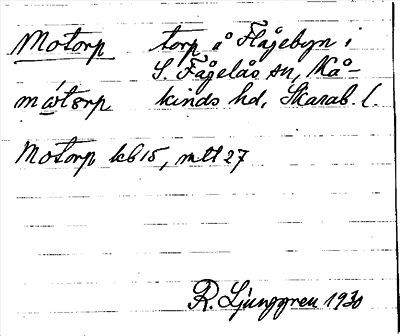 Motorp torp å Flåjebyn i
S. Fågelås sn, Kå-
mώtɛrp kinds hd, Skarab. l.
Motorp kb 15, mtl 27
R. Ljunggren 1930